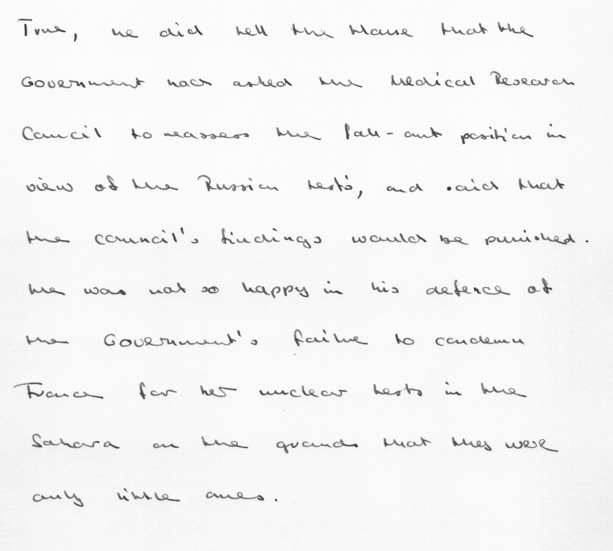 True, he did tell the House that the
Government had asked the Medical Research
Council to reassess the fall-out position in
view of the Russian tests, and said that
the council's findings would be punished.
He was not so happy in his defence of
the Government's failure to condemn
France for her nuclear tests in the
Sahara on the grounds that they were
only little ones.